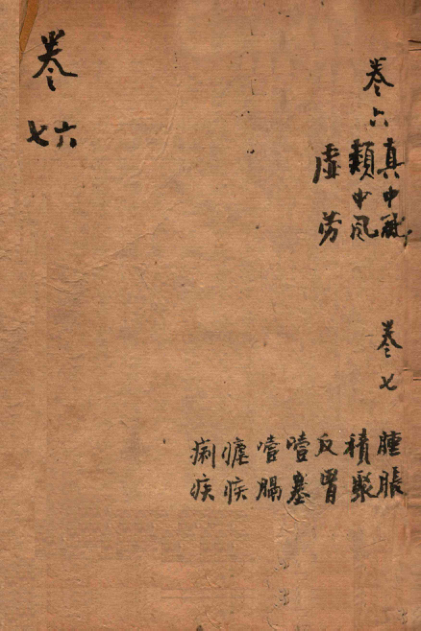 卷六
真中風
類中风
虚劳
卷七
腫脹
積聚
反胃
噎塞
噎膈
瘧疾
痢疾
卷六七